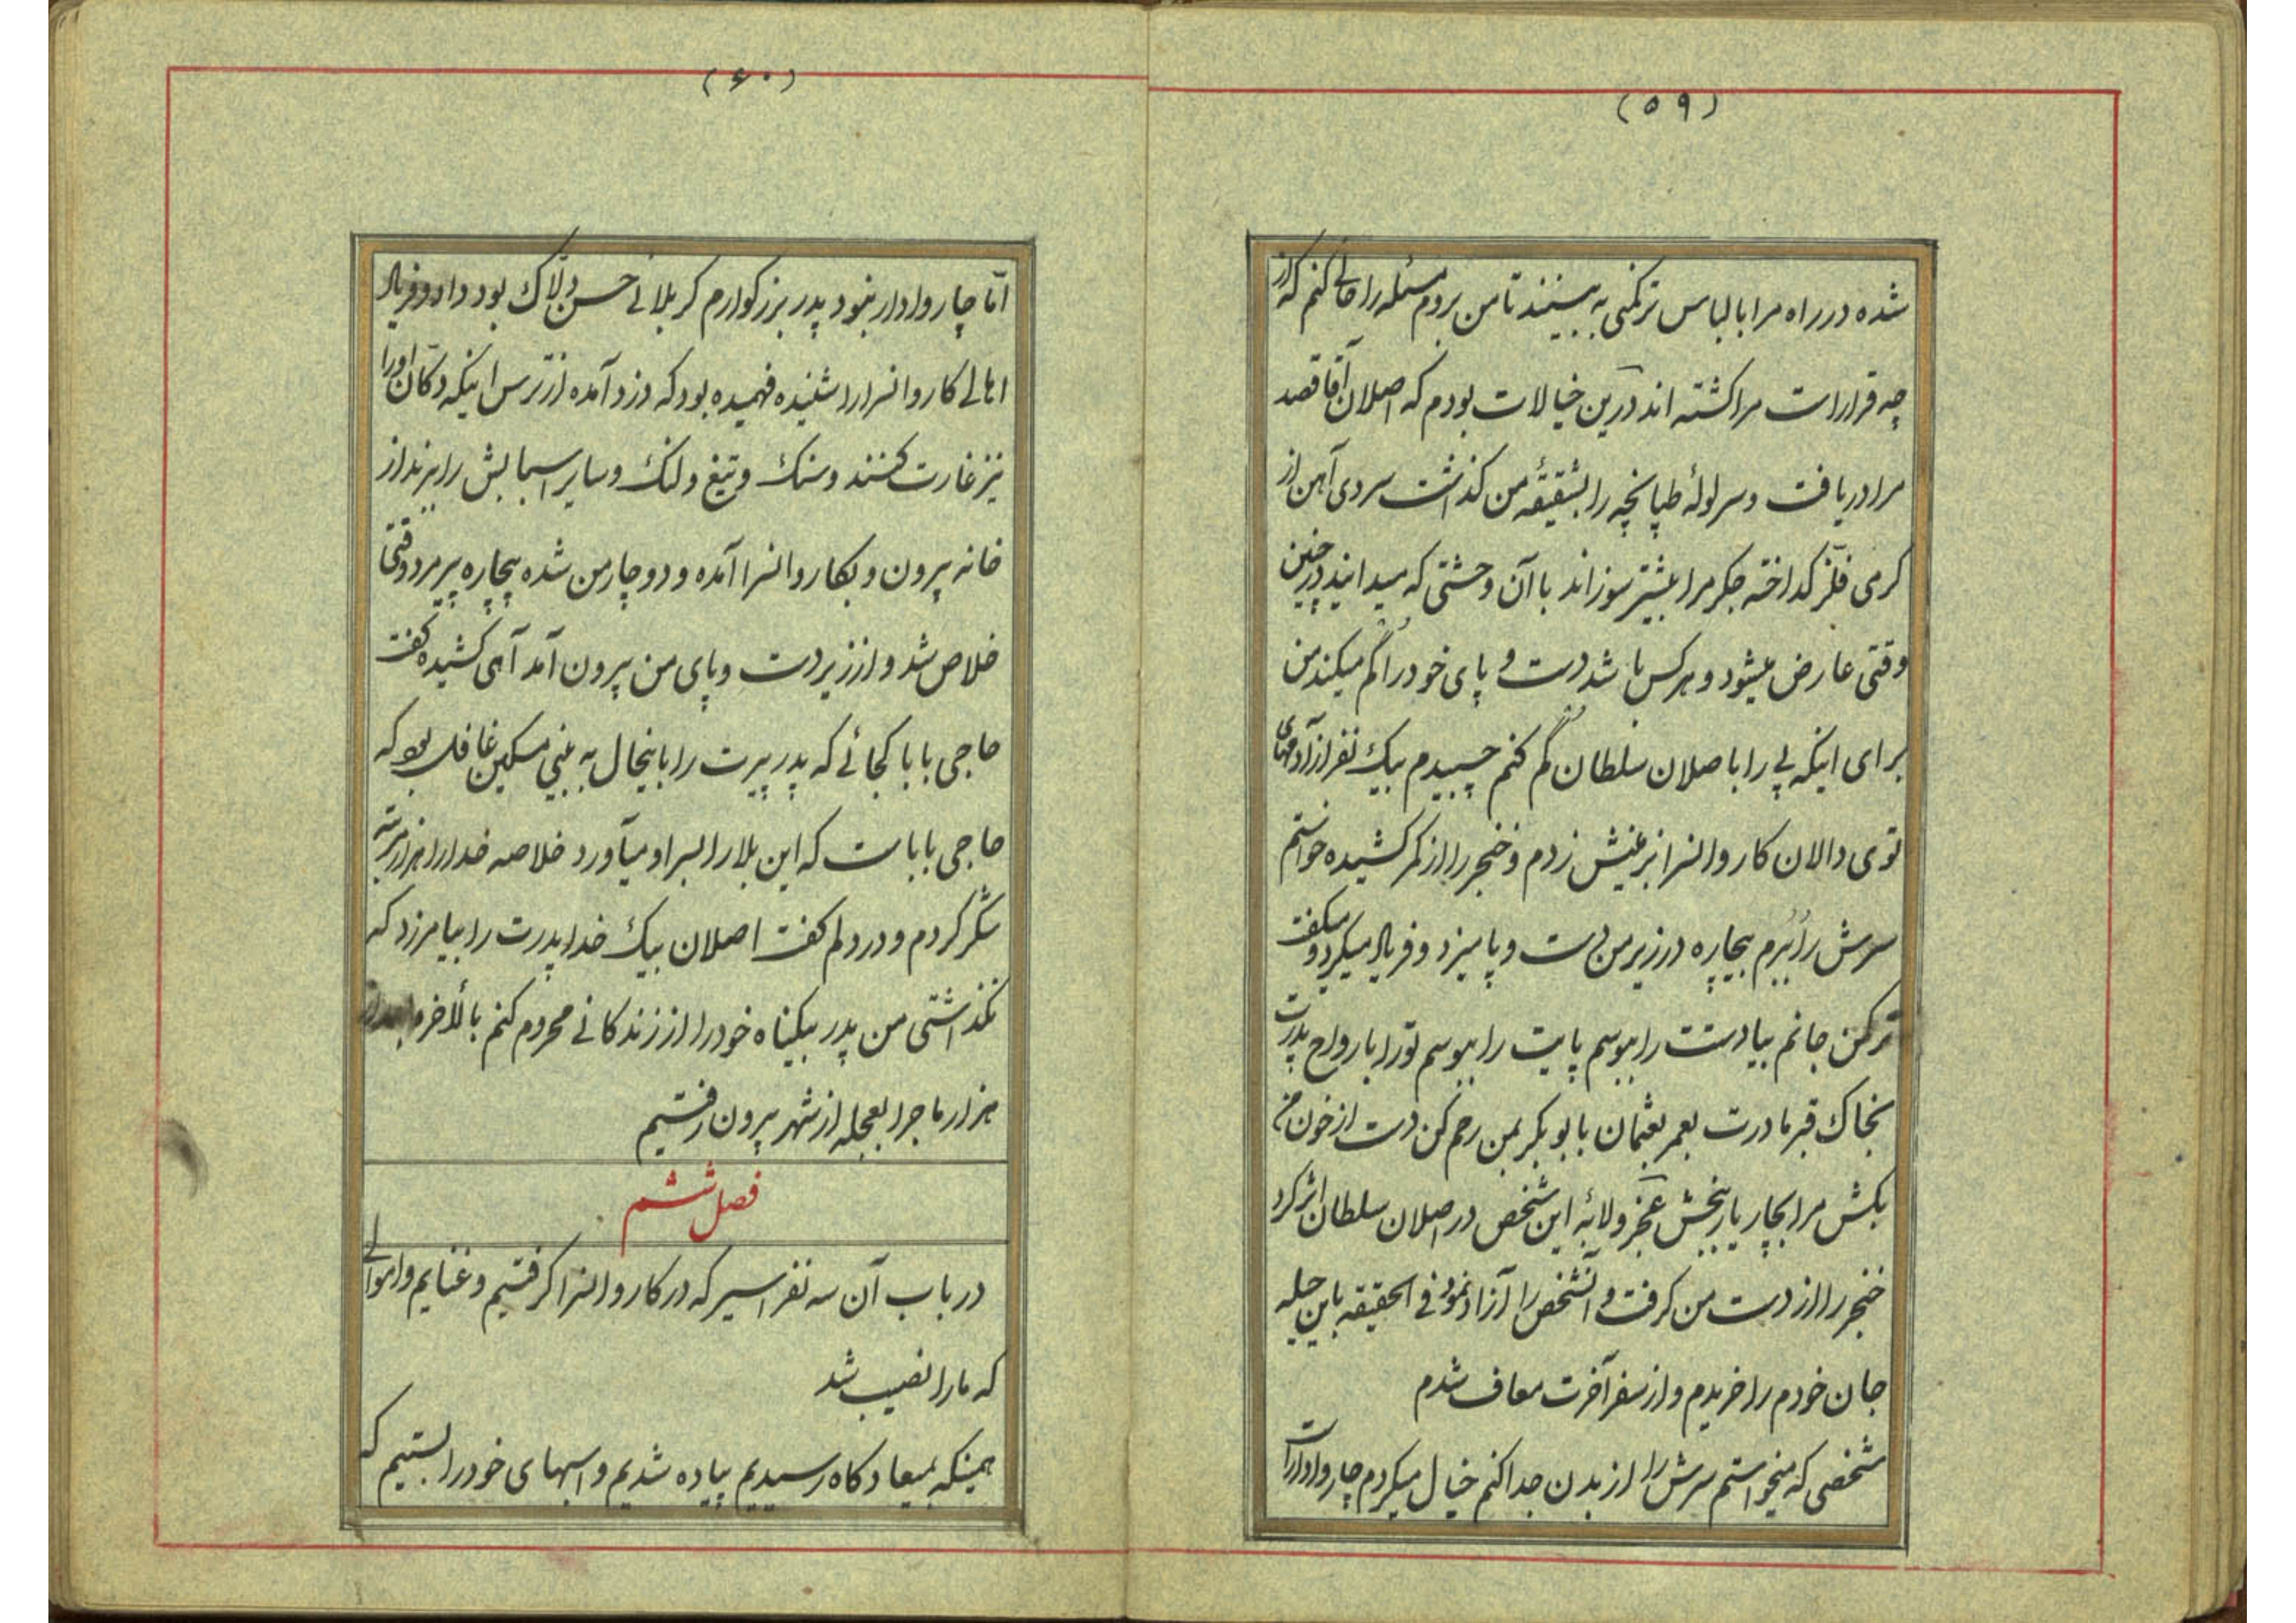 (۵۹)
شده در راه مرا بالباس ترکمنی به بینند تا من بروم مسئله را حالی کنم که از
چه قرار است مرا کشته اند درین خیالات بودم که اصلان آقا قصد
مرا دریافت و سر لولهٔ طپانچه را بشقیقهٔ من گذاشت سردی آهن از
کرمی فلز کداخته جکر مرا بیشتر سوزاند با آن وحشتی که میدانید در چنین
وقتی عارض میشود و هر کس باشد دست و پای خود را گم میکند من
برای اینکه پی را باصلان سلطان گم کنم چسبیدم بیک نفر از آدمهای
توی دالان کاروانسرا بزمینش زدم و خنجر را از کمر کشیده خواستم
سرش را ببرم بیچاره در زیر من دست و پا میزد و فریاد میکرد و میکفت
ترکمن جانم بیا دستت را ببوسم پایت را ببوسم تو را بارواح پدرت
بخاک قبر مادرت بعمر بعثمان بابوبکر بمن رحم کن دست از خون من
بکش مرا بچار یار ببخش عجز و لابهٔ این شخص در اصلان سلطان اثر کرد
خنجر را از دست من کرفت و آنشخص را آزاد نمود فی الحقیقه باین حیله
جان خودم را خریدم و از سفر آخرت معاف شدم
شخصی که میخواستم سرش را از بدن جدا کنم خیال میکردم چاروادار است
(۶۰)
امّا چاروادار نبود پدر بزرکوارم کربلائی حسن دلّاک بود داد و فریاد
اهالی کاروانسرا را شنیده فهمیده بود که دزد آمده از ترس اینکه دکّان او را
نیز غارت کنند و سنک و تیغ و لنک و سایر اسبابش را ببرند از
خانه بیرون و بکاروانسرا آمده و دوچار من شده بیچاره پیرمرد وقتی
خلاص شد و از زیر دست و پای من بیرون آمد آهی کشیده کفت
حاجی بابا کجائی که پدر پیرت را باینحال به بینی مسکین غافل بود که
حاجی بابا است که این بلا را بسر او میآورد خلاصه خدا را هزار مرتبه
شکر کردم و در دلم کفت اصلان بیک خدا پدرت را بیامرزد که
نکذاشتی من پدر بیکناه خود را از زندکانی محروم کنم بالأخره بعد از
هزار ماجرا بعجله از شهر بیرون رفتیم
فصل ششم
در باب آن سه نفر اسیر که در کاروانسرا کرفتیم و غنایم و اموالی
که ما را نصیب شد
همینکه بمیعادکاه رسیدیم پیاده شدیم و اسبهای خود را بستیم که